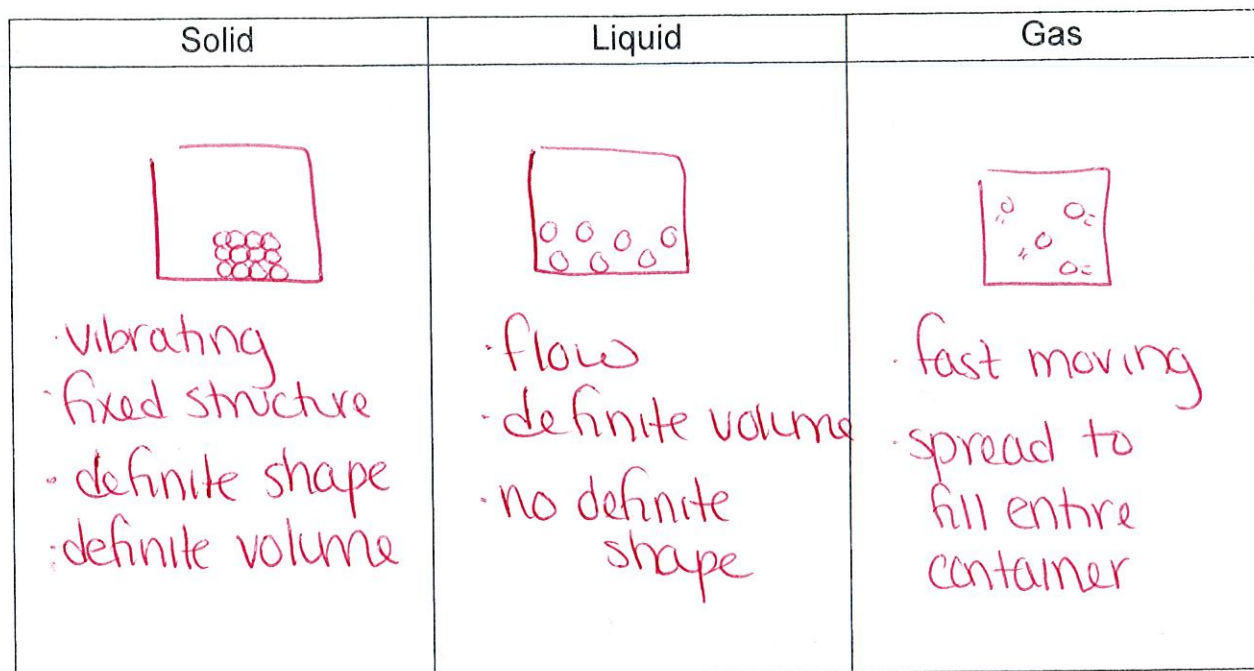 Solid
Liquid
Gas
· vibrating
· fixed structure
· definite shape
· definite volume
· flow
· definite volume
· no definite
shape
· fast moving
· spread to
fill entire
container